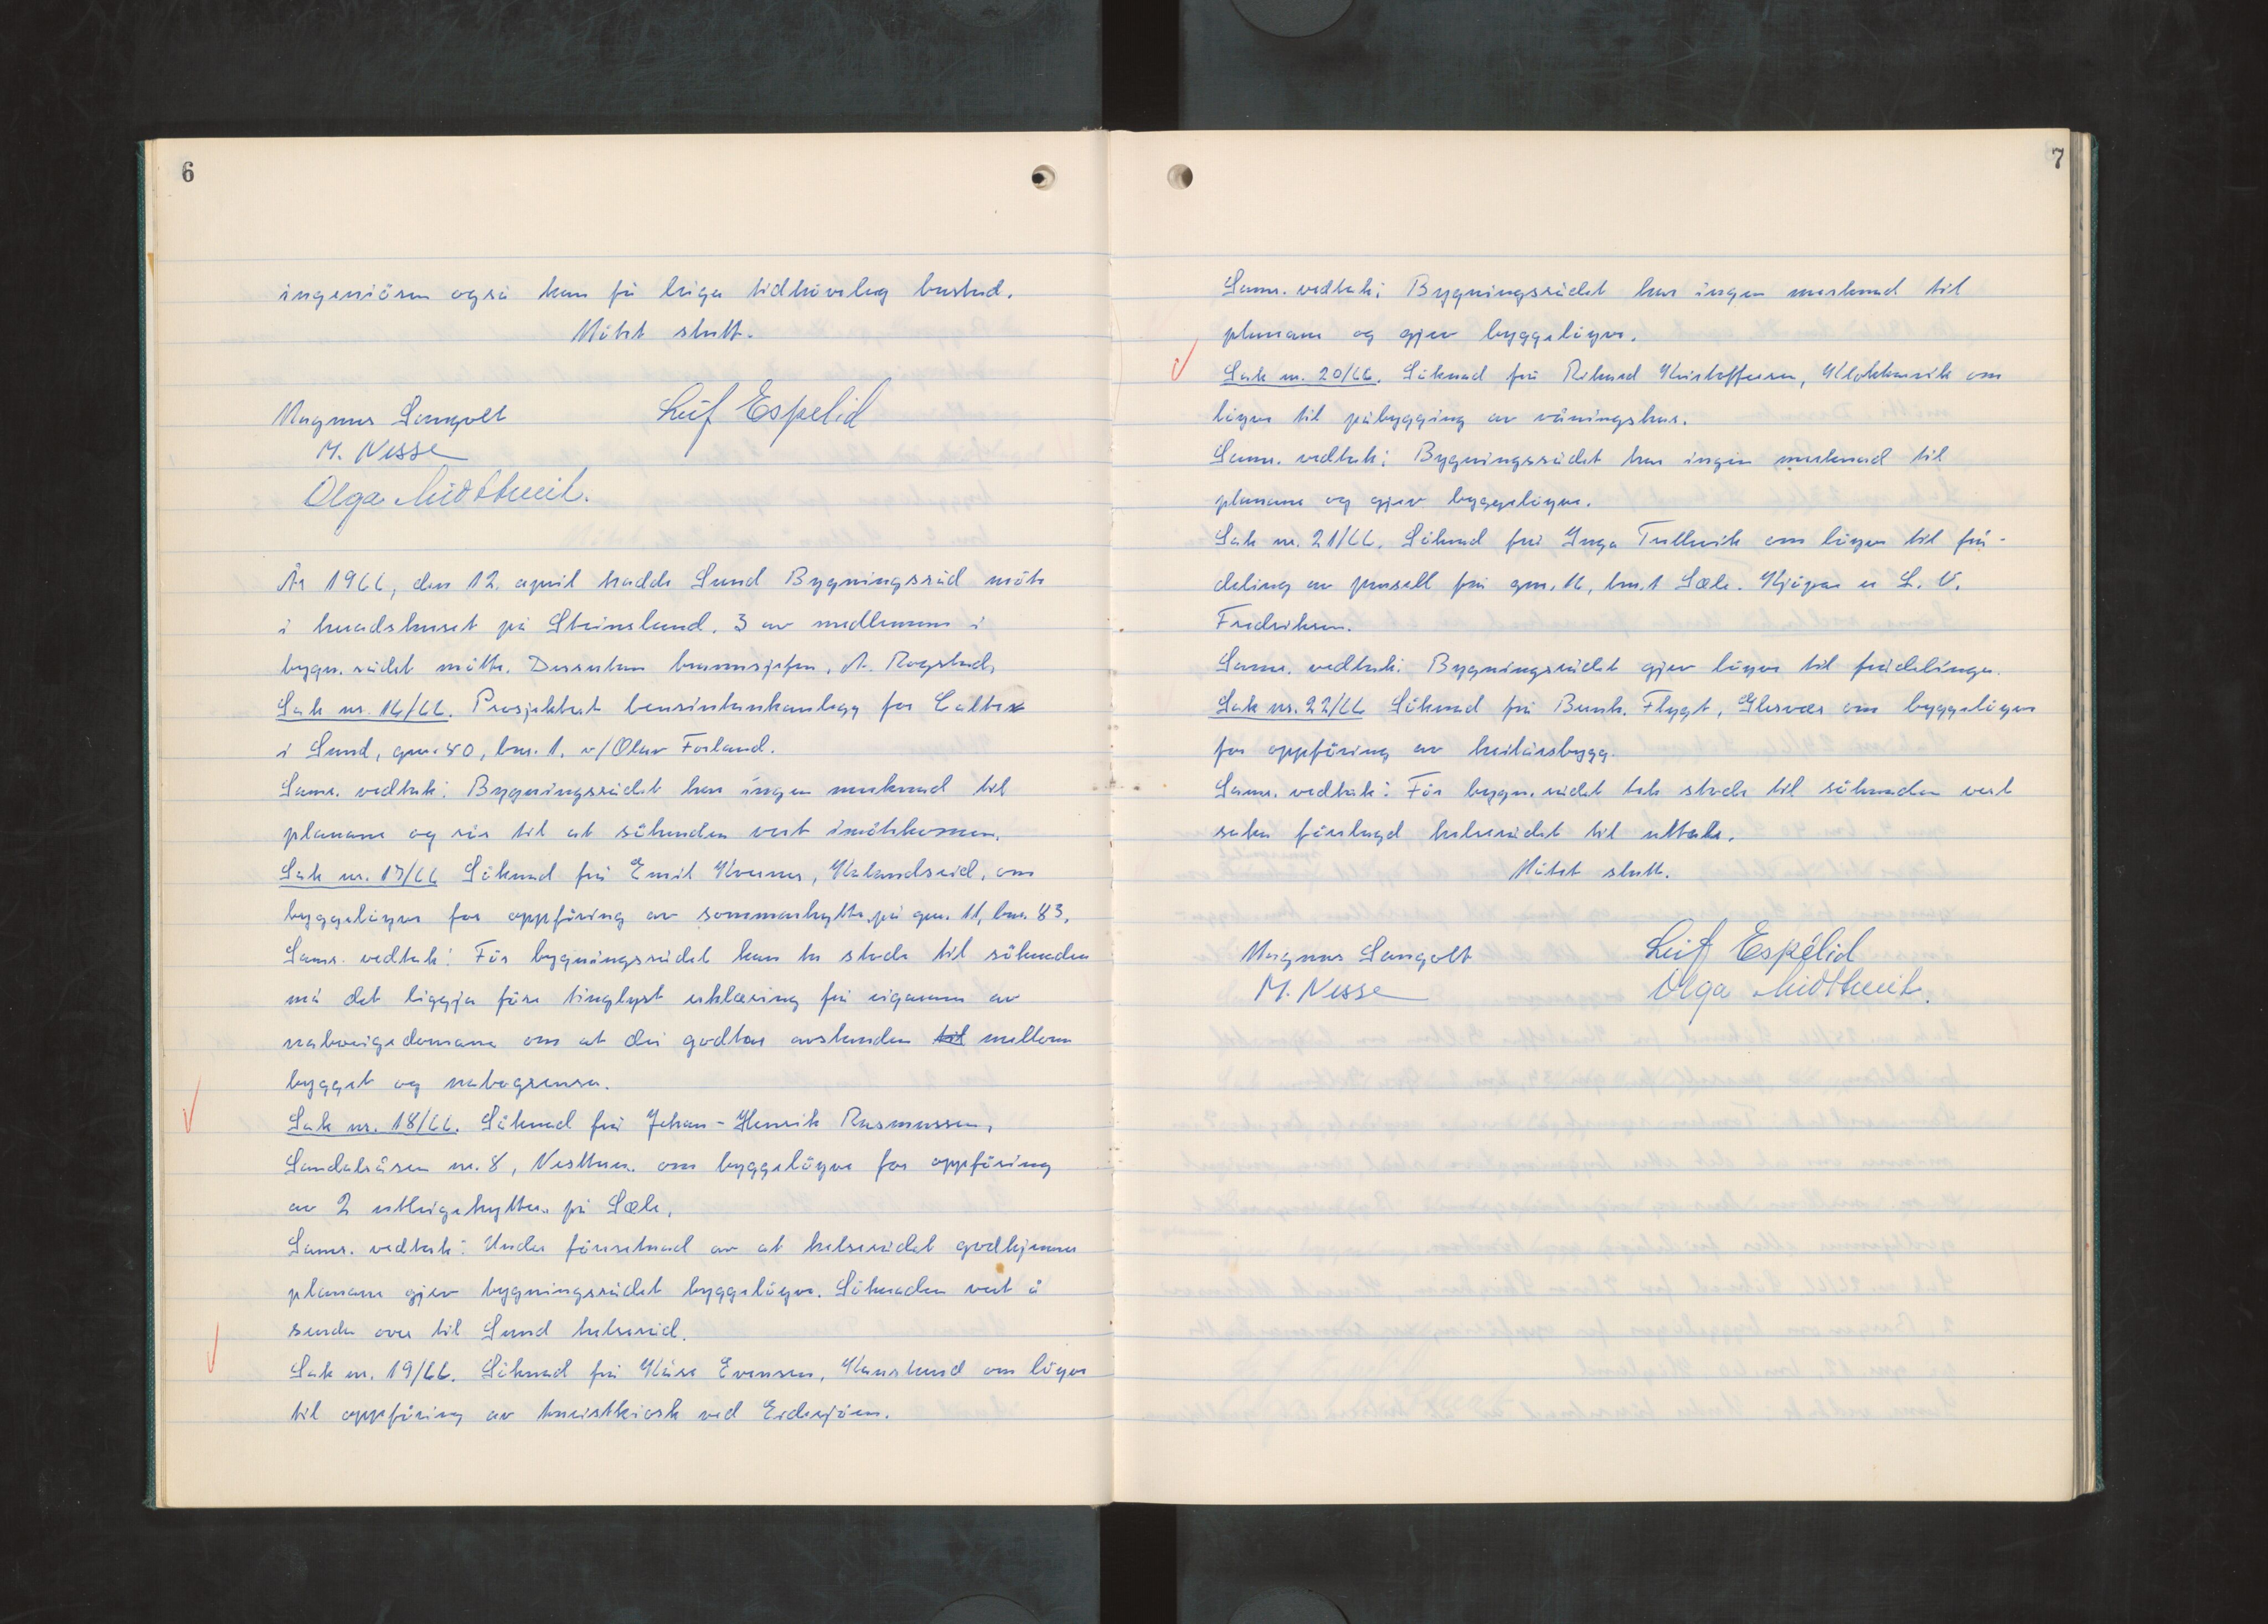 6
ingeniören også kan få leiga tidhöveleg bustad.
Mötet slutt.
Magnus Langolt
Leif Espelid
M. Nesse
Olga Midttveit.
År 1966, den 12. april hadde Sund Bygningsråd möte
i heradshuset på Steinsland. 3 av medlemene i
bygn.rådet mötte. Dessutan brannsjefen, A. Rogstad.
Sak nr. 16/66. Prosjektert bensintankanlegg for Caltex
i Sund, gnr. 40, bnr. 1. v/Olav Forland.
Samr. vedtak: Bygningsrådet har ingen merknad til
planane og rår til at söknaden vert imötekomen.
Sak nr. 17/66 Söknad frå Emil Kverner, Kalandseid, om
byggelöyve for oppföring av sommarhytte på gnr. 11, bnr. 83.
Samr. vedtak: För bygningsrådet kan ta stode til söknaden
må det liggja före tinglyst erklæring frå eigarane av
naboeigedomane om at dei godtar avstanden til mellom
bygget og nabogrensa.
Sak nr. 18/66. Söknad frå Johan-Henrik Rasmussen,
Sandalsåsen nr. 8, Nesttun. om byggelöyve for oppföring
av 2 utleigehytter på Sæle.
Samr. vedtak: Under föresetnad av at helserådet godkjenner
planane gjev bygningsrådet byggelöyve. Söknaden vert å
senda over til Sund helseråd.
Sak nr. 19/66. Söknad frå Kåre Evensen, Kausland om löyve
til oppföring av turistkiosk ved Eidesjöen.
7
Samr. vedtak: Bygningsrådet har ingen merknad til
planane og gjev byggelöyve.
Sak nr. 20/66. Söknad frå Rikard Kristoffersen, Klokkarvik om
löyve til påbygging av våningshus.
Samr. vedtak: Bygningsrådet har ingen merknad til
planane og gjev byggelöyve.
Sak nr. 21/66. Söknad frå Inga Tellevik om löyve til frå-
deling av parsell frå gnr. 16, bnr. 1 Sæle. Kjöpar er L. V.
Fredriksen.
Samr. vedtak: Bygningsrådet gjev löyve til frådelinga.
Sak nr. 22/66 Söknad frå Flygt, Glesvær om byggelöyve
for oppföring av heilårsbygg.
Samr. vedtak: För bygn.rådet tek stode til söknaden vert
saka förelagd helserådet til uttale.
Mötet slutt.
Magnus Langolt
Leif Espelid
M. Nesse
Olga Midttveit.